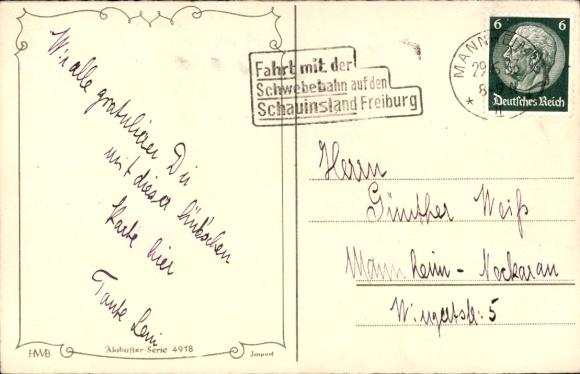 Wir alle gratulieren Dir
mit dieser hübschen
Karte hier
Tante Leni
HWB
Alabaster-Serie 4918
Import
Fahrt mit der
Schwebebahn auf den
Schauinsland Freiburg
MANN
29
8
6 6
Deutsches Reich
Herrn
Günther Weiß
Mannheim - Neckarau
Wingertstr. 5